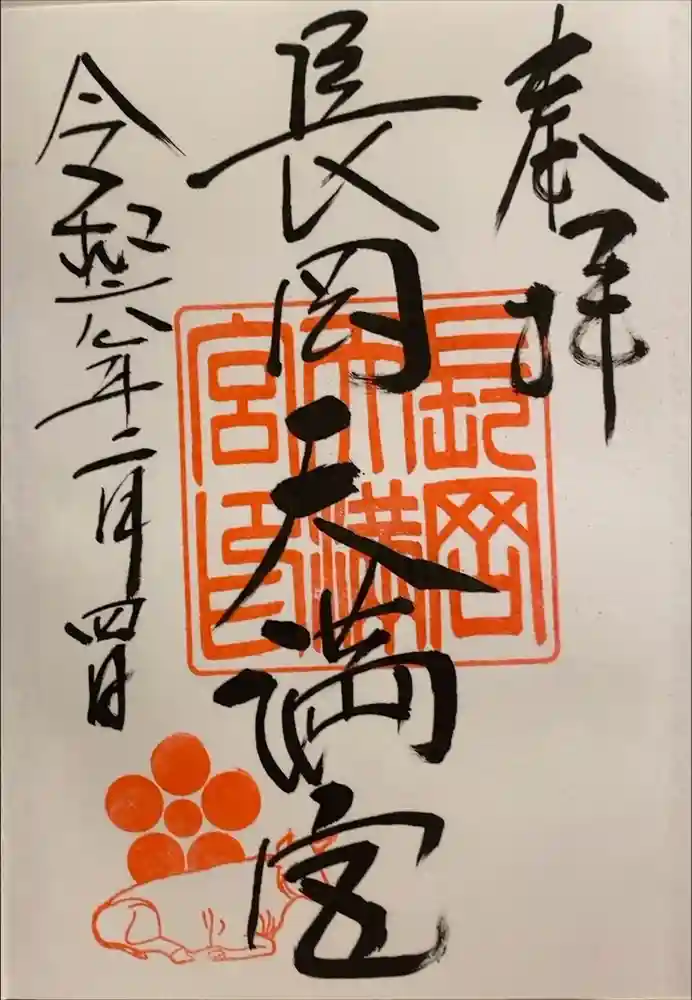 奉拝
長岡天満宮
長岡天満宮印
令和六年二月四日